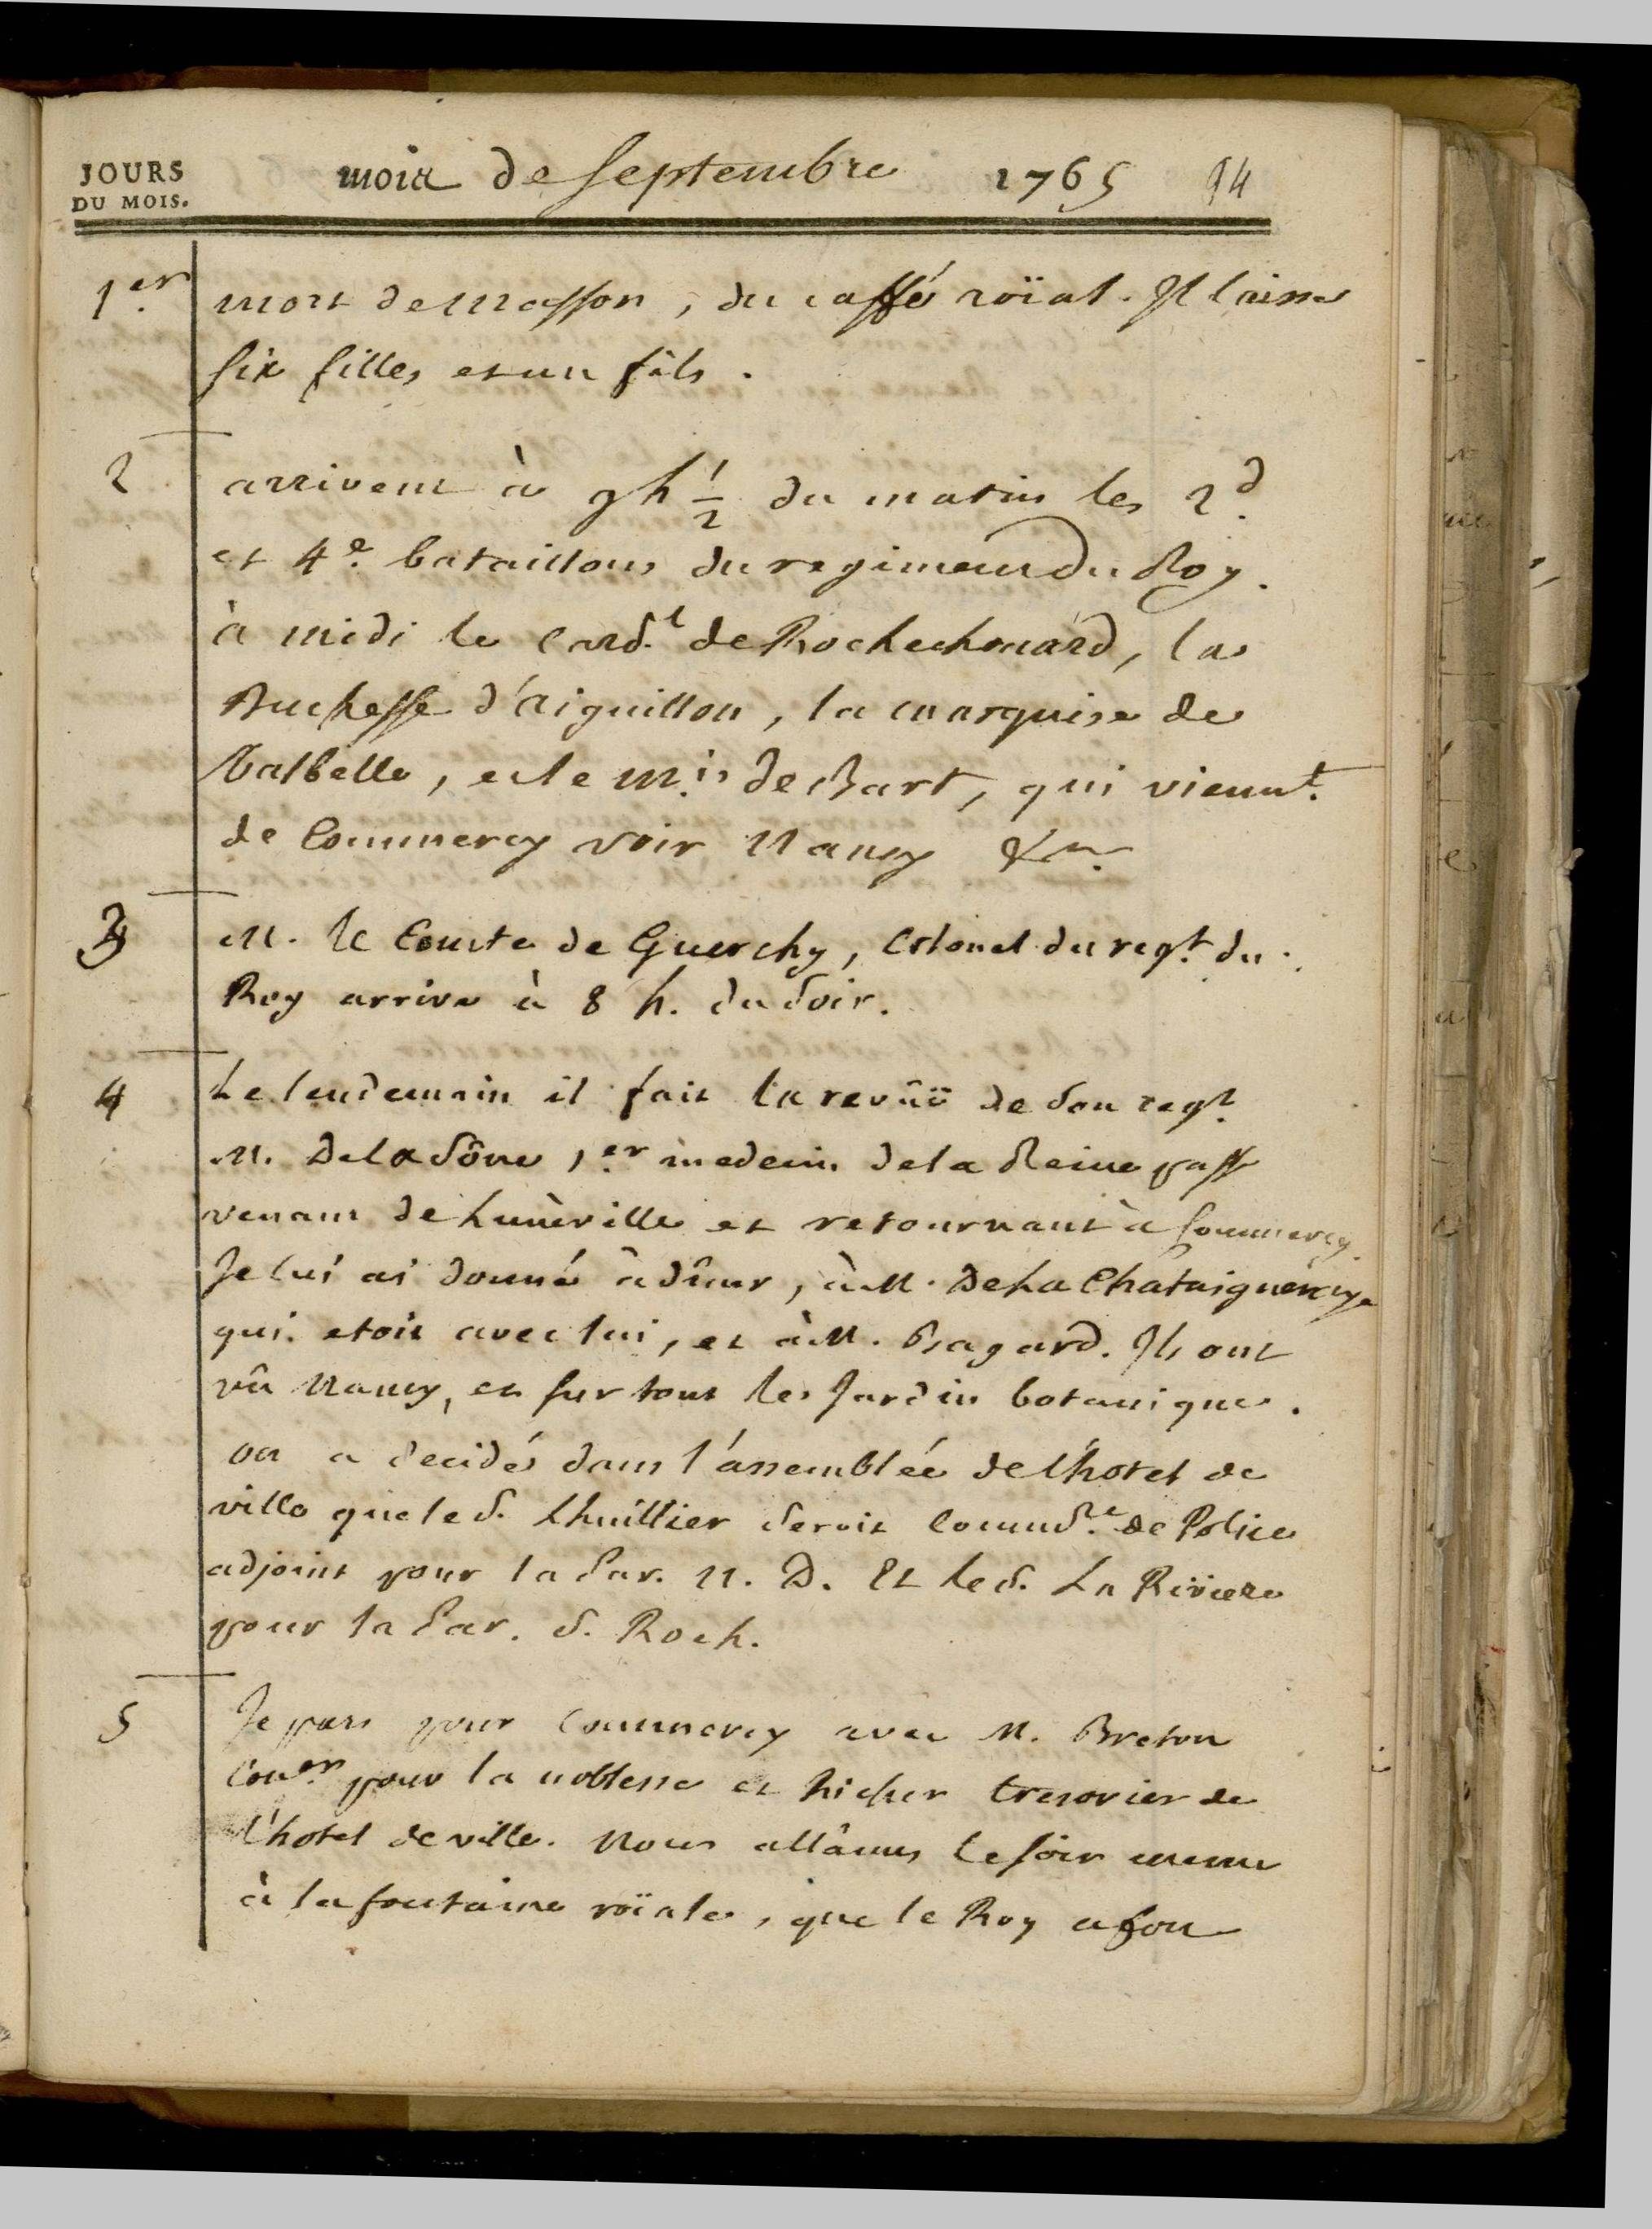 JOURS
DU MOIS.
mois de septembre 1765 94
1er. mort de Masson, du caffé roïal. Il laisse
six filles et un fils.
2 arrivent à 9 h ½ du matin les 2d.
et 4e. bataillons du regiment du Roy.
à midi le Card.l de Rochechouard, la
Duchesse d'Aiguillon, la marquise de
Valbelle, et le M.is de Bart, qui vienn.t
de Commercy voir Nancy &.
3 M. le Comte de Guerchy, Colonel du reg.t du
Roy arrive à 8 h. du soir.
4 Le lendemain il fait la revûë de son reg.t
M. De la Sône 1.er medecin de la Reine passe
venant de Lunèville et retournant à Commercy.
Je lui ai donné à dîner, à M. De La Chataigneraye
qui etoit avec lui, et à M. Bagard. Ils ont
vû Nancy, et sur tout le Jardin botanique.
on a decidé dans l'assemblée de l'hotel de
ville que le S. Lhuillier seroit Comm.re de Police
adjoint pour la Par. N. D. Et le S. La Riviere
pour la Par. S. Roch.
5 Je pars pour Commercy avec M. Breton
Con.er pour la noblesse et Richer tresorier de
l'hotel de ville. Nous allâmes le soir meme
à la fontaine roïale, que le Roy a fon